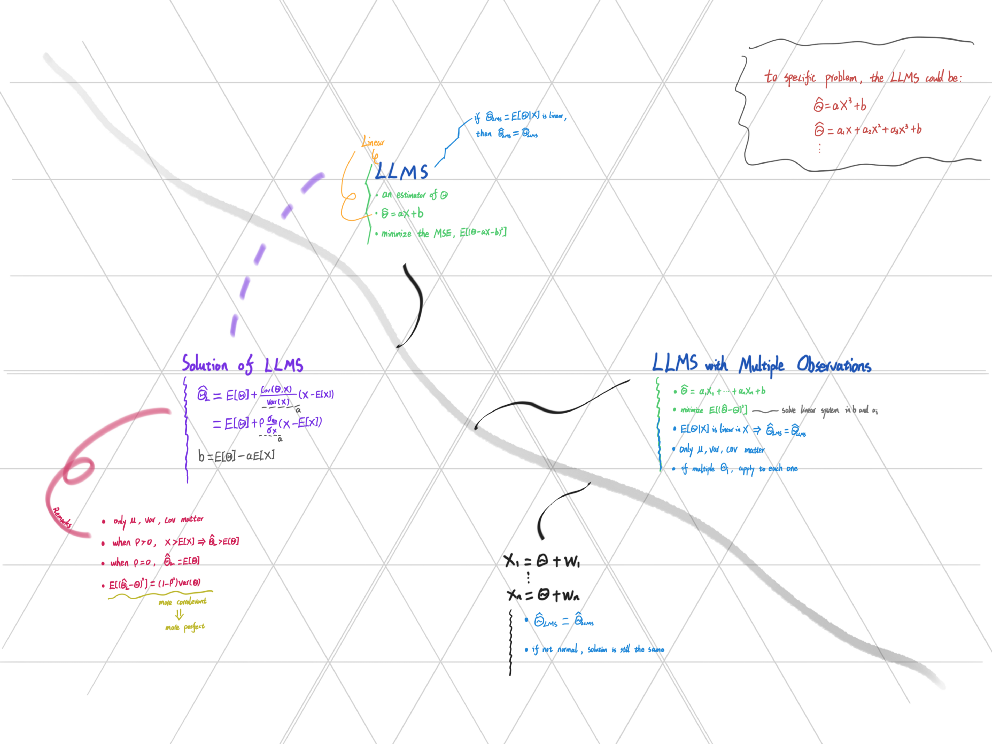 to specific problem, the LLMS could be:
Θ̂ = aX³ + b
Θ̂ = a₁X + a₂X² + a₃X³ + b
⋮
if Θ̂LMS = E[Θ|X] is linear,
then Θ̂LMS = Θ̂LLMS
Linear
LLMS
• an estimator of Θ
• Θ̂ = aX + b
• minimize the MSE, E[(Θ-aX-b)²]
Solution of LLMS
Θ̂L = E[Θ] + Cov(Θ,X)/Var(X) (X-E[X])
a
= E[Θ] + ρ σΘ/σX (X-E[X])
a
b = E[Θ] - aE[X]
Remarks
• only μ, Var, Cov matter
• when ρ>0, X>E[X] ⇒ Θ̂L>E[Θ]
• when ρ=0, Θ̂L = E[Θ]
• E[(Θ̂L-Θ)²] = (1-ρ²)Var(Θ)
more correlevent
⇓
more perfect
LLMS with Multiple Observations
• Θ̂ = a₁X₁ + ··· + aₙXₙ + b
• minimize E[(Θ-Θ̂)²] — solve linear system in b and aᵢ
• E[Θ|X] is linear in X ⇒ Θ̂LMS = Θ̂LLMS
• only μ, Var, Cov matter
• if multiple Θj, apply to each one
X₁ = Θ + W₁
⋮
Xₙ = Θ + Wₙ
• Θ̂LMS = Θ̂LLMS
• if not normal, solution is still the same